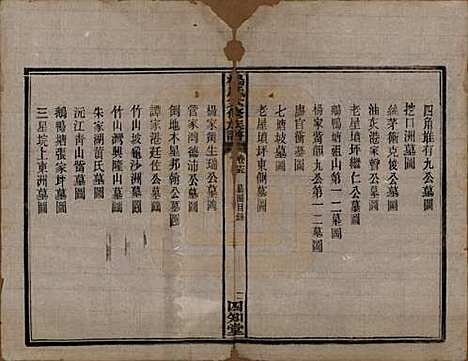 四角堆打九公墓圖
挖口洲墓圖
絲茅衝克俊公墓圖
油炎港家曾公墓圖
老屋塘坪繼仁公墓圖
鵝鴨塘祖山第一二墓圖
楊家 公第一二墓圖
廖官衝墓圖
七塘坡墓圖
老屋塘坪東側墓圖
卷六
墓圖目錄
四知堂
楊家 生瑞公墓圖
管家衝明公墓圖
倒地木星邦衛公墓圖
譚家港廷任公墓圖
竹山坡龜沙洲墓圖
竹山灣興隆山墓圖
朱家湖黃氏墓圖
沅江青山 墓圖
鵝鴨塘張家坪墓圖
三星垸上東洲墓圖